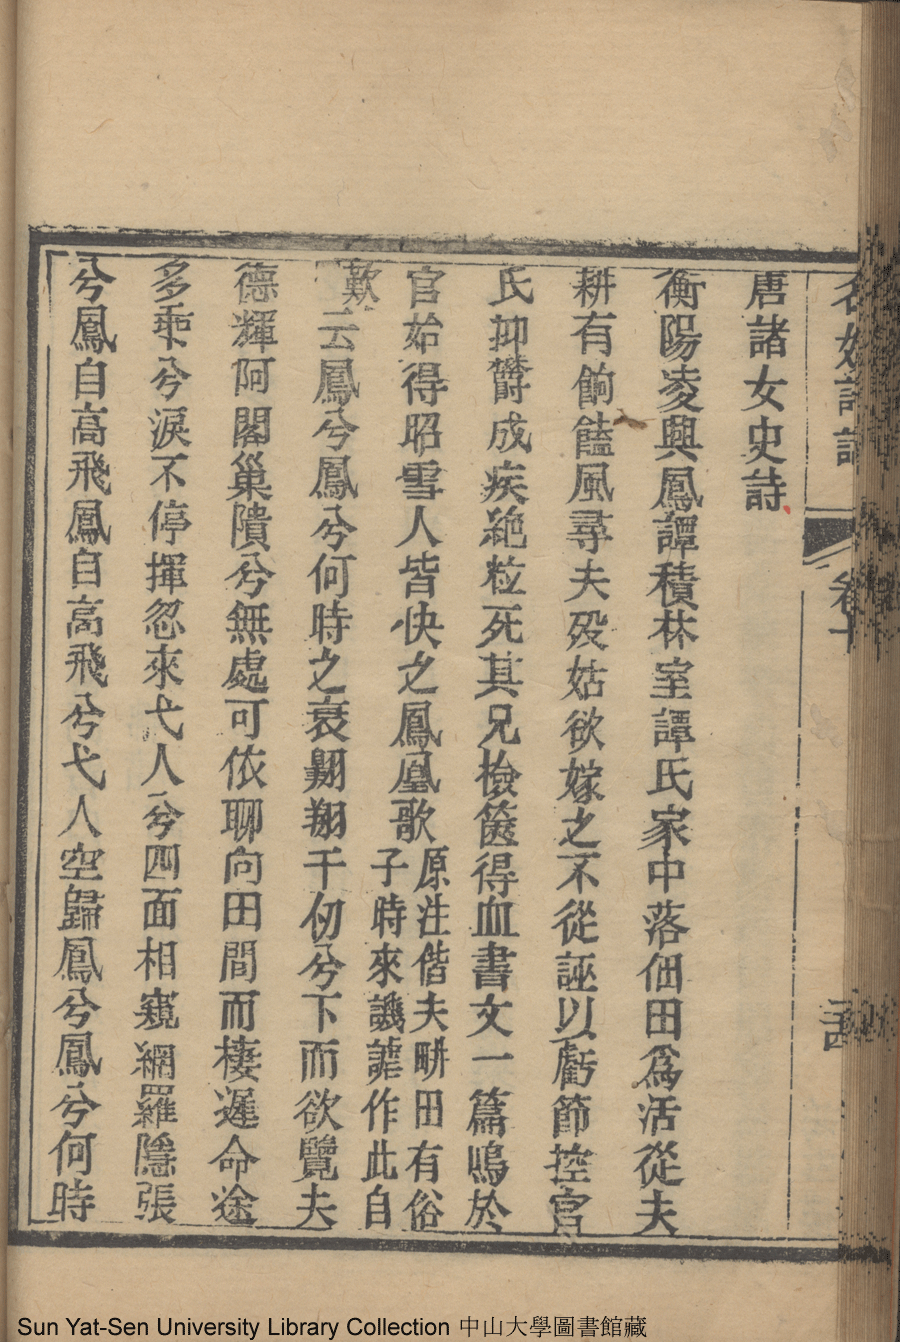 名媛詩話 卷十 三四
唐諸女史詩
衡陽凌興鳳譚積林室譚氏家中落佃田爲活從夫
耕有餉饁風尋夫歿姑欲嫁之不從誣以虧節控官
氏抑鬱成疾絶粒死其兄檢篋得血書文一篇鳴於
官始得昭雪人皆快之鳳凰歌原注偕夫畊田有俗
子時來譏謔作此自
歎云鳳兮鳳兮何時之衰翺翔千仞兮下而欲覽夫
德輝阿閣巢隤兮無處可依聊向田間而棲遲命途
多乖兮淚不停揮忽來弋人兮四面相窺網羅隱張
兮鳳自高飛鳳自高飛兮弋人空歸鳳兮鳳兮何時
Sun Yat-Sen University Library Collection 中山大學圖書館藏